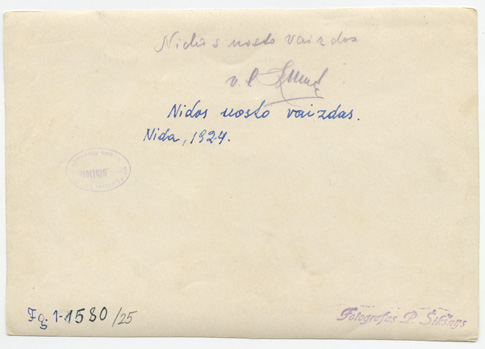 Nidos uosto vaizdas
Nidos uosto vaizdas.
Nida, 1924.
Fg. 1-1580/25
Fotografas P.